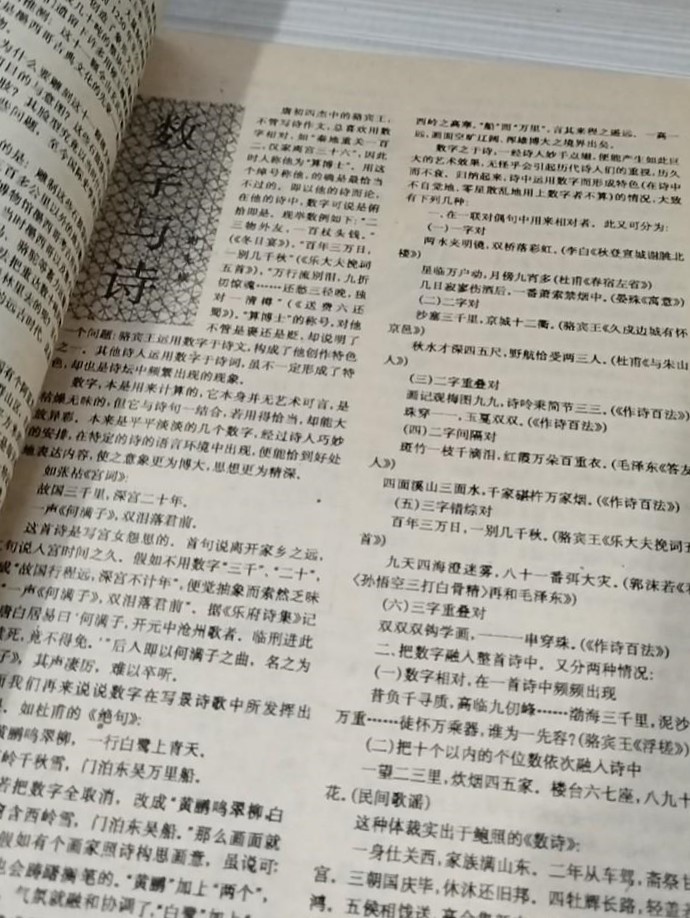 数字与诗
唐初四杰中的骆宾王，
不管写诗作文，总喜欢用数
字相对，如“秦地重关一百
二，汉家离宫三十六”，因此
时人称他为“算博士”。用这
个绰号称他，的确是最恰当
不过的。即以他的诗而论，
在他的诗中，数字可说是俯
拾即是。现举数例如下：“二
三物外友，一百杖头钱。”
（《冬日宴》），“百年三万日，
一别几千秋”（《乐大夫挽词
五首》），“万行流别泪，九折
切惊魂……还愁三径晚，独
对一清樽”（《送费六还
蜀》）。“算博士”的称号，对他
不管是褒还是贬，却说明了
一个问题：骆宾王运用数字于诗文，构成了他创作特色
之一。其他诗人运用数字于诗词，虽不一定形成了特
色，却也是诗坛中频繁出现的现象。
数字，本是用来计算的，它本身并无艺术可言，是
枯燥无味的，但它与诗句一结合，若用得恰当，却能大
放异彩。本来是平平淡淡的几个数字，经过诗人巧妙
的安排，在特定的诗的语言环境中出现，便能恰到好处
地表达内容，使之意象更为博大，思想更为精深。
如张祜《宫词》：
故国三千里，深宫二十年。
一声《何满子》，双泪落君前。
这首诗是写宫女怨思的。首句说离开家乡之远，
二句说入宫时间之久。假如不用数字“三千”、“二十”，
成“故国行程远，深宫不计年”，便觉抽象而索然乏味
“一声《何满子》，双泪落君前”。据《乐府诗集》记
唐白居易曰‘何满子，开元中沧州歌者，临刑进此
赎死，竟不得免。’”后人即以何满子之曲，名之为
子》，其声凄厉，难以卒听。
而我们再来说说数字在写景诗歌中所发挥出
，如杜甫的《绝句》：
黄鹂鸣翠柳，一行白鹭上青天。
岭千秋雪，门泊东吴万里船。
若把数字全取消，改成“黄鹂鸣翠柳，白
含西岭雪，门泊东吴船。”那么画面就
假如有个画家照诗构思画意，虽说可：
也会踌躇搁笔的。“黄鹂”加上“两个”，
气氛就融和协调了。“白鹭”加上
西岭之高寒。“船”而“万里”，言其来程之遥远。一高一
远，画面空旷辽阔，浑雄博大之境界出矣。
数字之于诗，一经诗人妙手点缀，便能产生如此巨
大的艺术效果，无怪乎会引起历代诗人们的重视，历久
而不衰。归纳起来，诗中运用数字而形成特色（在诗中
不自觉地、零星散乱地用上数字者不算）的情况，大致
有下列几种：
一、在一联对偶句中用来相对者。此又可分为：
（一）一字对
两水夹明镜，双桥落彩虹。（李白《秋登宣城谢朓北
楼》）
星临万户动，月傍九霄多（杜甫《春宿左省》）
几日寂寥伤酒后，一番萧索禁烟中。（晏殊《寓意》）
（二）二字对
沙塞三千里，京城十二衢。（骆宾王《久戍边城有怀
京邑》）
秋水才深四五尺，野航恰受两三人。（杜甫《与朱山
人》）
（三）二字重叠对
画记观梅图九九，诗吟秉简节三三。（《作诗百法》）
珠穿一一，玉戛双双。（《作诗百法》）
（四）二字间隔对
斑竹一枝千滴泪，红霞万朵百重衣。（毛泽东《答友
人》）
四面溪山三面水，千家碪杵万家烟。（《作诗百法》）
（五）三字错综对
百年三万日，一别几千秋。（骆宾王《乐大夫挽词五
首》）
九天四海澄迷雾，八十一番弭大灾。（郭沫若《
〈孙悟空三打白骨精〉再和毛泽东》）
（六）三字重叠对
双双双钩学画，一一一串穿珠。（《作诗百法》）
二、把数字融入整首诗中。又分两种情况：
（一）数字相对，在一首诗中频频出现
昔负千寻质，高临九仞峰……渤海三千里，泥沙
万重……徒怀万乘器，谁为一先容？（骆宾王《浮槎》）
（二）把十个以内的个位数依次融入诗中
一望二三里，炊烟四五家。楼台六七座，八九十
花。（民间歌谣）
这种体裁实出于鲍照的《数诗》：
一身仕关西，家族满山东。二年从车驾，斋祭甘
宫。三朝国庆毕，休沐还旧邦。四牡辉长路，轻盖
鸿。五侯相饯送，高会